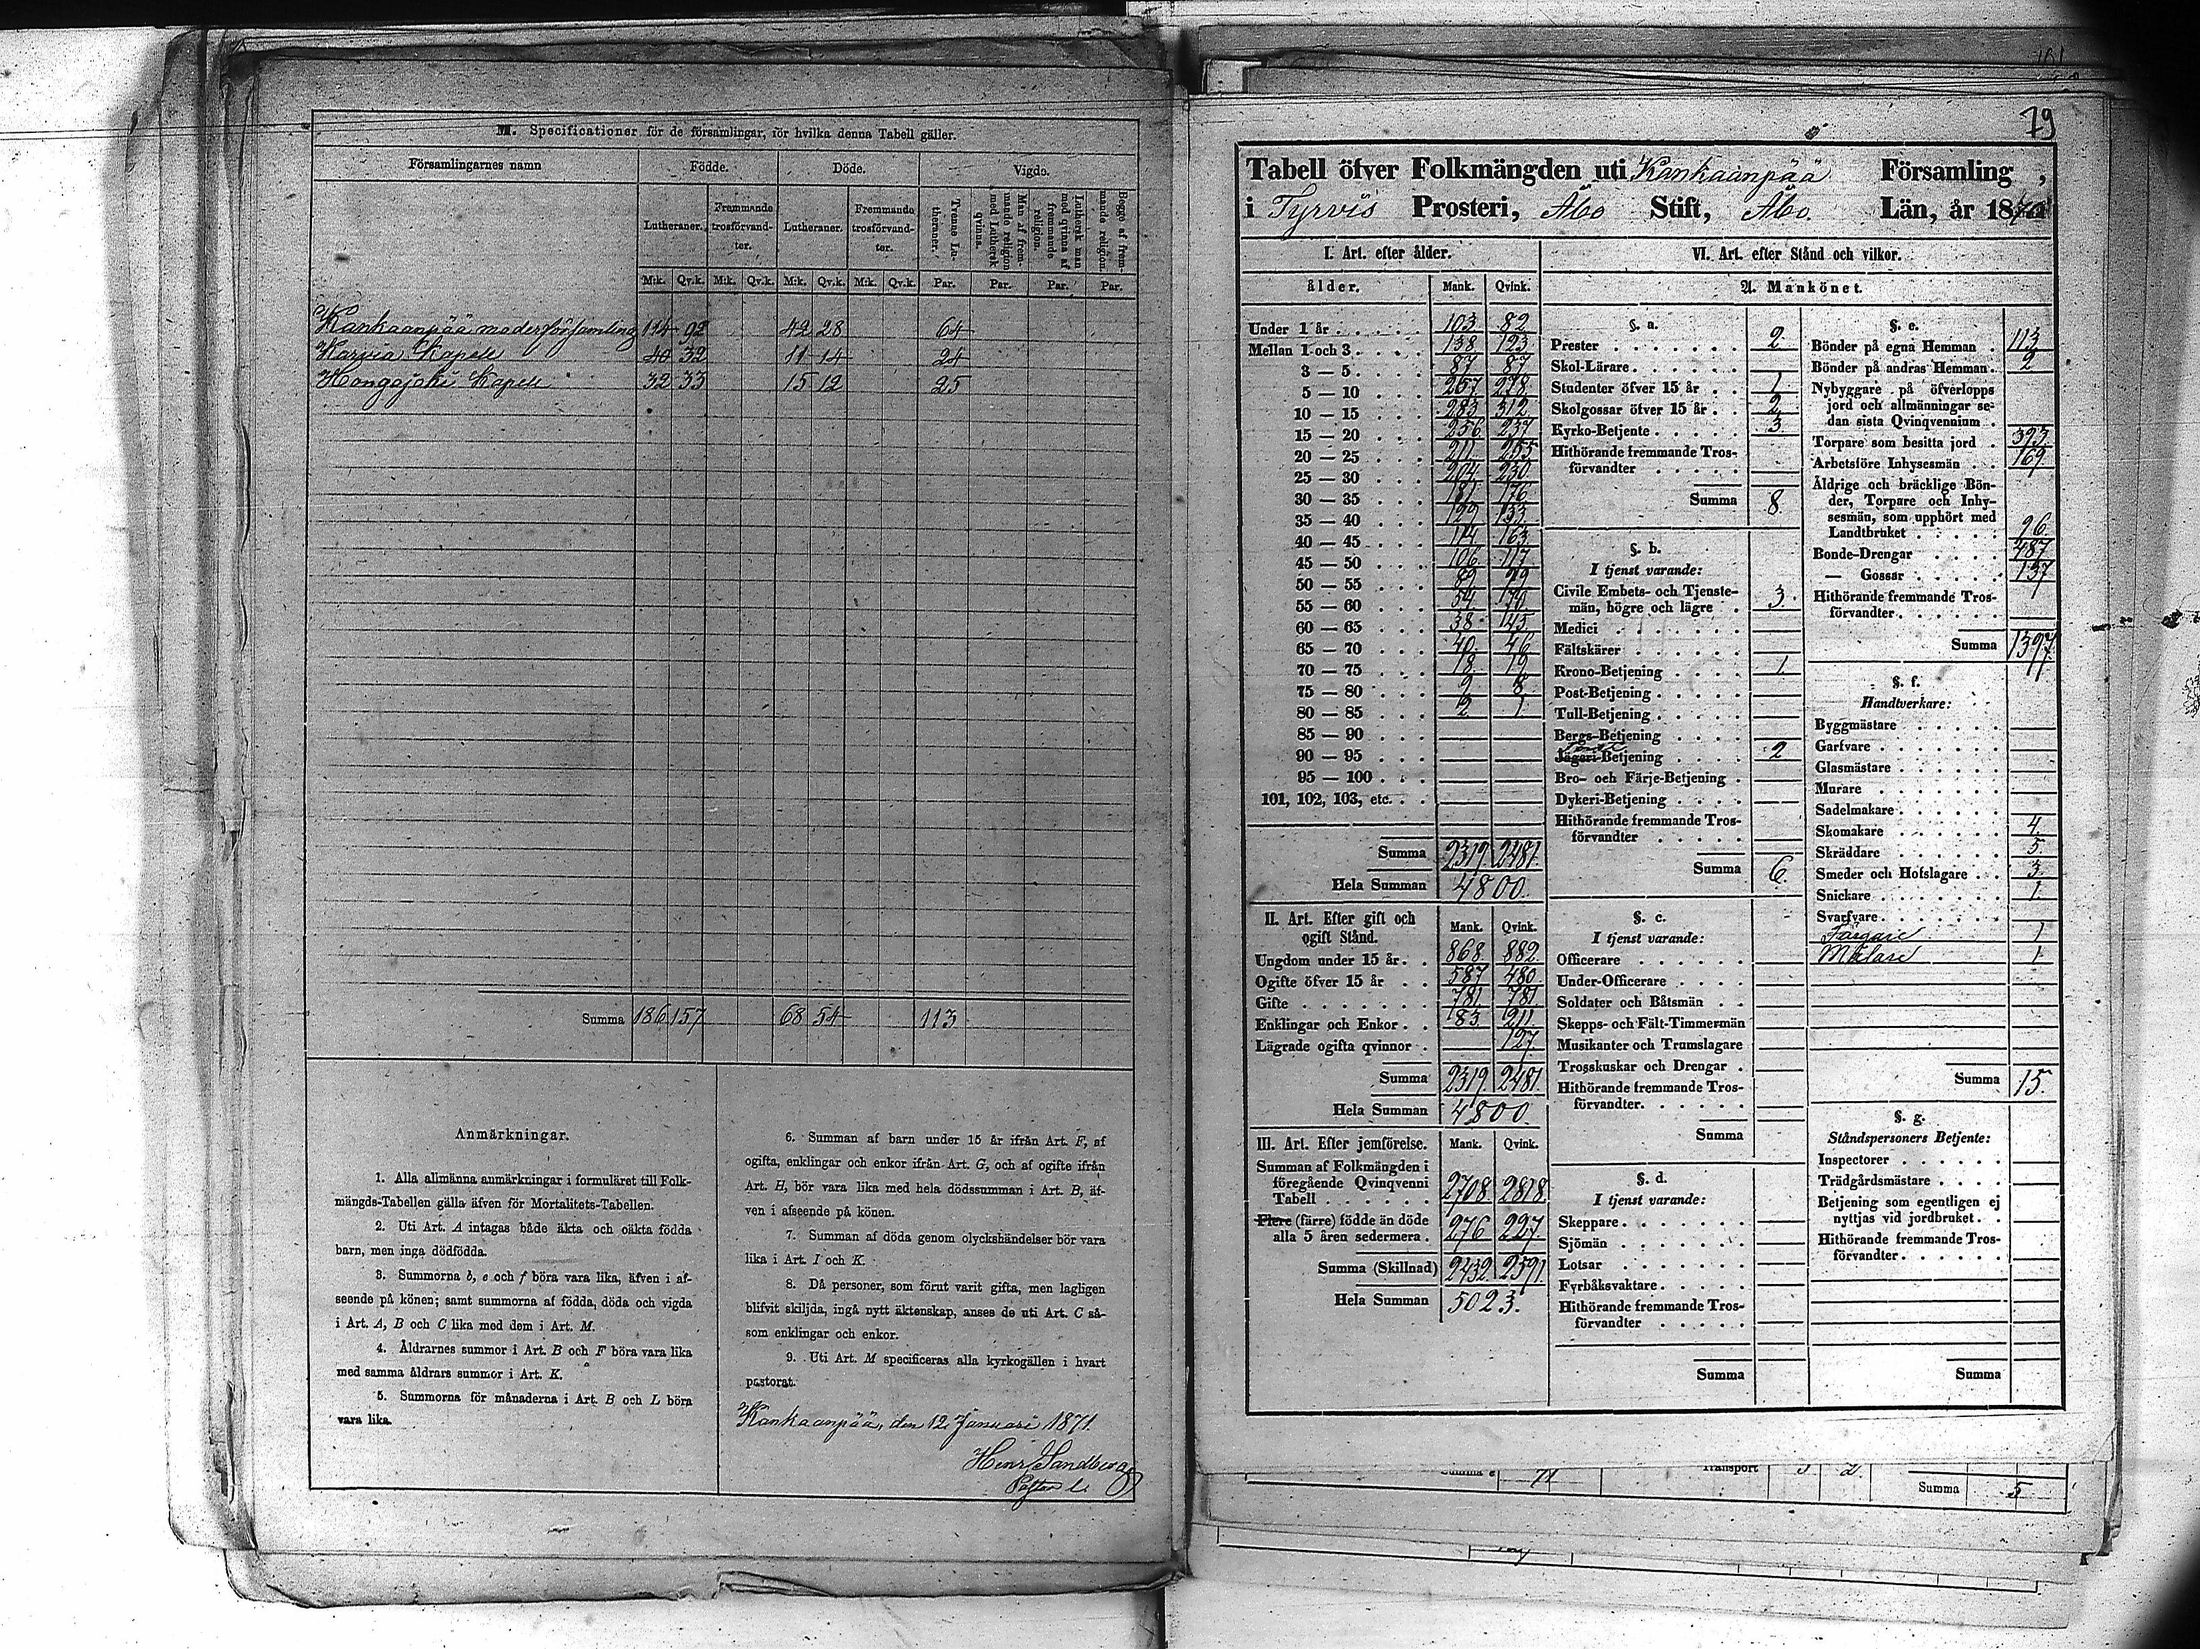 M. Specificationer för de församlingar, för hvilka denna Tabell gäller.
Församlingarnes namn Födde. Döde. Vigde.
Lutheraner. Fremmande trosförvandter. Lutheraner. Fremmande trosförvandter. Trenne Lutheraner. Man af fremmande religion med Luthersk qvinna. Luthersk man med qvinna af fremmande religion. Begge af fremmande religion.
M:k. Qv.k. M:k. Qv.k. M:k. Qv.k. M:k. Qv.k. Par. Par. Par. Par.
Kankaanpää moderförsamling 114 92 42 28 64
Karvia Kapell 40 32 11 14 24
Hongojoki Kapell 32 33 15 12 25
Summa 186 157 68 54 113
Anmärkningar.
1. Alla allmänna anmärkningar i formuläret till Folk-
mängds-Tabellen gälla äfven för Mortalitets-Tabellen.
2. Uti Art. A intagas både äkta och oäkta födda
barn, men inga dödfödda.
3. Summorna b, e och f böra vara lika, äfven i af-
seende på könen; samt summorna af födda, döda och vigda
i Art. A, B och C lika med dem i Art. M.
4. Åldrarnes summor i Art. B och F böra vara lika
med samma åldrars summor i Art. K.
5. Summorna för månaderna i Art. B och L böra
vara lika.
6. Summan af barn under 15 år ifrån Art. F, af
ogifta, enklingar och enkor ifrån Art. G, och af ogifte ifrån
Art. H, bör vara lika med hela dödssumman i Art. B, äf-
ven i afseende på könen.
7. Summan af döda genom olyckshändelser bör vara
lika i Art. I och K.
8. Då personer, som förut varit gifta, men lagligen
blifvit skiljda, ingå nytt äktenskap, anses de uti Art. C så-
som enklingar och enkor.
9. Uti Art. M specificeras alla kyrkogällen i hvart
pastorat.
Kankaanpää, den 12 Januari 1871.
Henr. Sandberg
79
Tabell öfver Folkmängden uti Kankaanpää Församling,
i Tyrvis Prosteri, Åbo Stift, Åbo Län, år 1870
I. Art. efter ålder.
ålder. Mank. Qvink.
Under 1 år 103 82
Mellan 1 och 3 138 123
3 — 5 87 87
5 — 10 257 278
10 — 15 283 312
15 — 20 256 237
20 — 25 211 255
25 — 30 204 230
30 — 35 181 176
35 — 40 129 133
40 — 45 114 163
45 — 50 106 117
50 — 55 89
55 — 60 54
60 — 65 38 143
65 — 70 40 46
70 — 75 18 19
75 — 80 9 8
80 — 85 2 1
85 — 90
90 — 95
95 — 100
101, 102, 103, etc.
Summa 2319 2481
Hela Summan 4800.
II. Art. Efter gift och ogift Stånd. Mank. Qvink.
Ungdom under 15 år 868 882
Ogifte öfver 15 år 587 480
Gifte 781 781
Enklingar och Enkor 83 211
Lägrade ogifta qvinnor 127
Summa 2319 2481
Hela Summan 4800.
III. Art. Efter jemförelse. Mank. Qvink.
Summan af Folkmängden i
föregående Qvinqvenni
Tabell 2708 2818
Flere (färre) födde än döde
alla 5 åren sedermera 276 227
Summa (Skillnad) 2432 2591
Hela Summan 5023.
VI. Art. efter Stånd och vilkor.
A. Mankönet.
§. a.
Prester 2
Skol-Lärare
Studenter öfver 15 år 1
Skolgossar öfver 15 år 2
Kyrko-Betjente 3
Hithörande fremmande Tros-
förvandter
Summa 8
§. b.
I tjenst varande:
Civile Embets- och Tjenste-
män, högre och lägre 3
Medici
Fältskärer
Krono-Betjening 1
Post-Betjening
Tull-Betjening
Bergs-Betjening
Jägeri-Betjening 2
Bro- och Färje-Betjening
Dykeri-Betjening
Hithörande fremmande Tros-
förvandter
Summa 6
§. c.
I tjenst varande:
Officerare
Under-Officerare
Soldater och Båtsmän
Skepps- och Fält-Timmermän
Musikanter och Trumslagare
Trosskuskar och Drengar
Hithörande fremmande Tros-
förvandter.
Summa
§. d.
I tjenst varande:
Skeppare
Sjömän
Lotsar
Fyrbåksvaktare
Hithörande fremmande Tros-
förvandter
Summa
§. e.
Bönder på egna Hemman 113
Bönder på andras Hemman 2
Nybyggare på öfverlopps
jord och allmänningar se-
dan sista Qvinqvennium
Torpare som besitta jord 393
Arbetsföre Inhysesmän 169
Åldrige och bräcklige Bön-
der, Torpare och Inhy-
sesmän, som upphört med
Landtbruket 96
Bonde-Drengar 487
— Gossar 137
Hithörande fremmande Tros-
förvandter
Summa 1397
§. f.
Handtverkare:
Byggmästare
Garfvare
Glasmästare
Murare
Sadelmakare
Skomakare 4
Skräddare 5
Smeder och Hofslagare 3
Snickare 1
Svarfvare
Färgare 1
Målare 1
Summa 15
§. g.
Ståndspersoners Betjente:
Inspectorer
Trädgårdsmästare
Betjening som egentligen ej
nyttjas vid jordbruket
Hithörande fremmande Tros-
förvandter
Summa
Transport 2
Summa 5